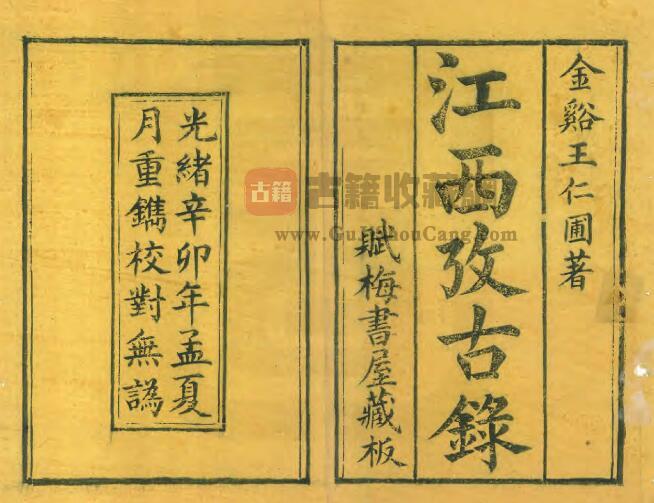 金谿王仁圃著
江西攷古錄
賦梅書屋藏板
光緒辛卯年孟夏
月重鐫校對無譌
古籍
古籍收藏
www.GuJiShouCang.com